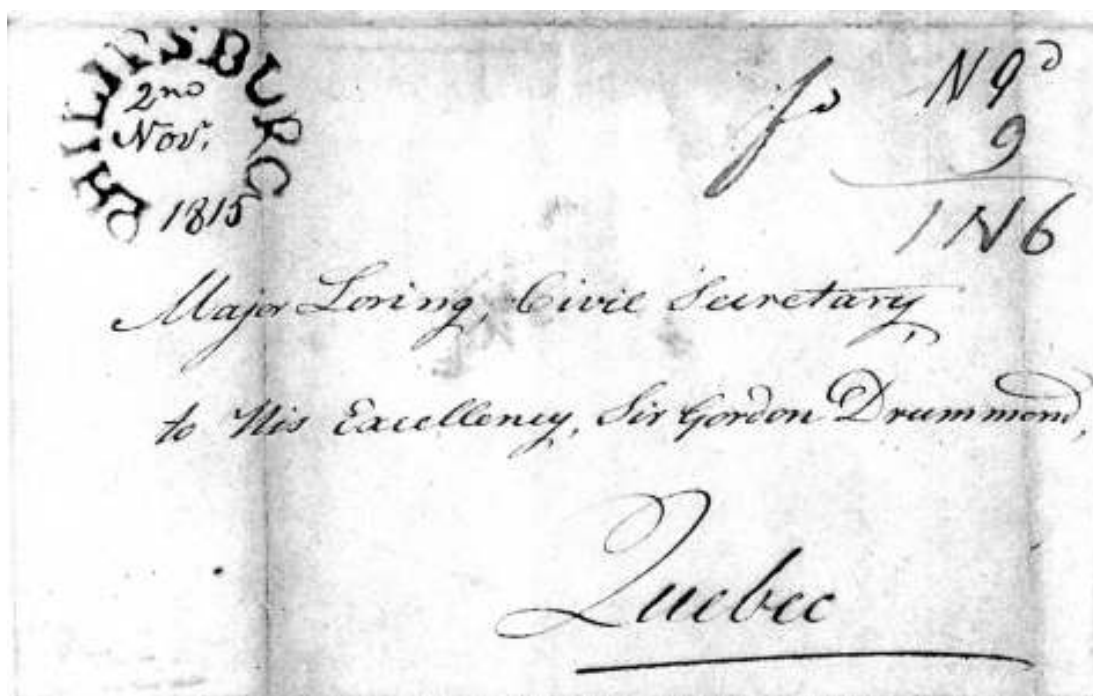 PHILIPSBURG
2nd
Nov.
1815
N 9d
9
1 N 6
Major Loring, Civil Secretary
to His Excellency, Sir Gordon Drummond,
Quebec